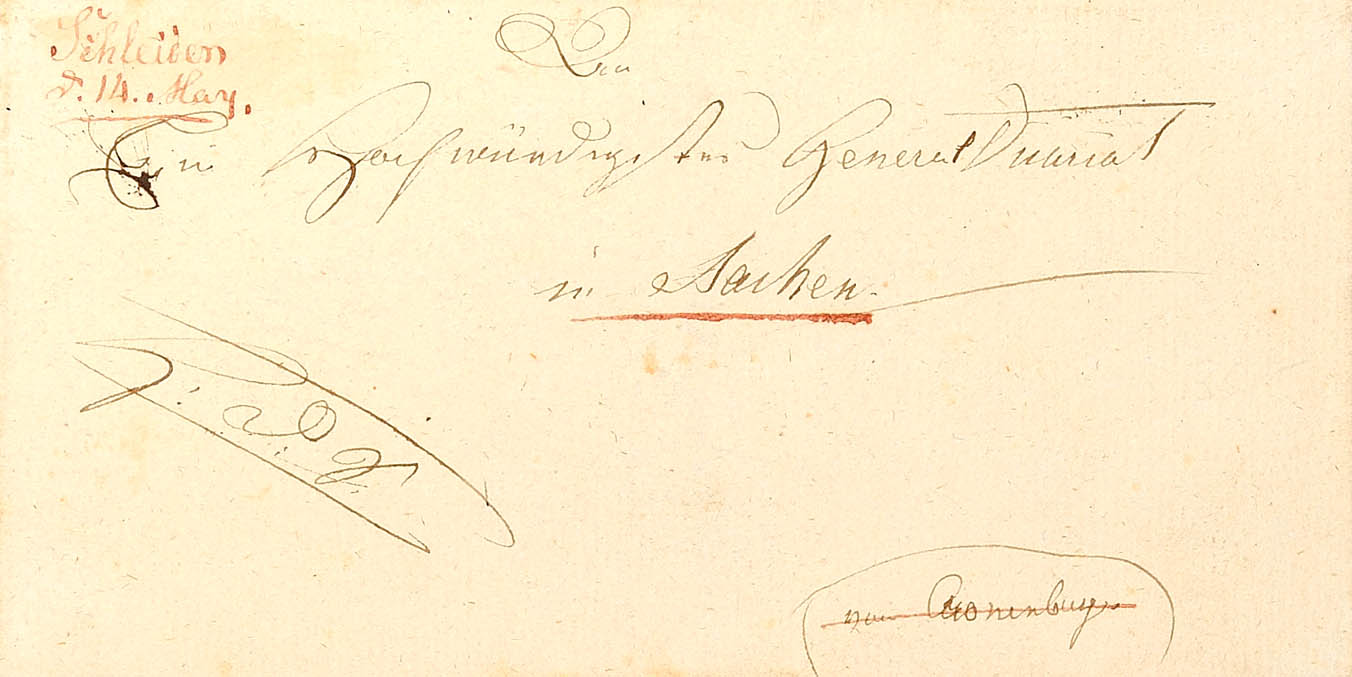 Schleiden
d. 14. May.
An
Ein Hochwürdigstes General Vicariat
in Aachen.
von Cronenburg